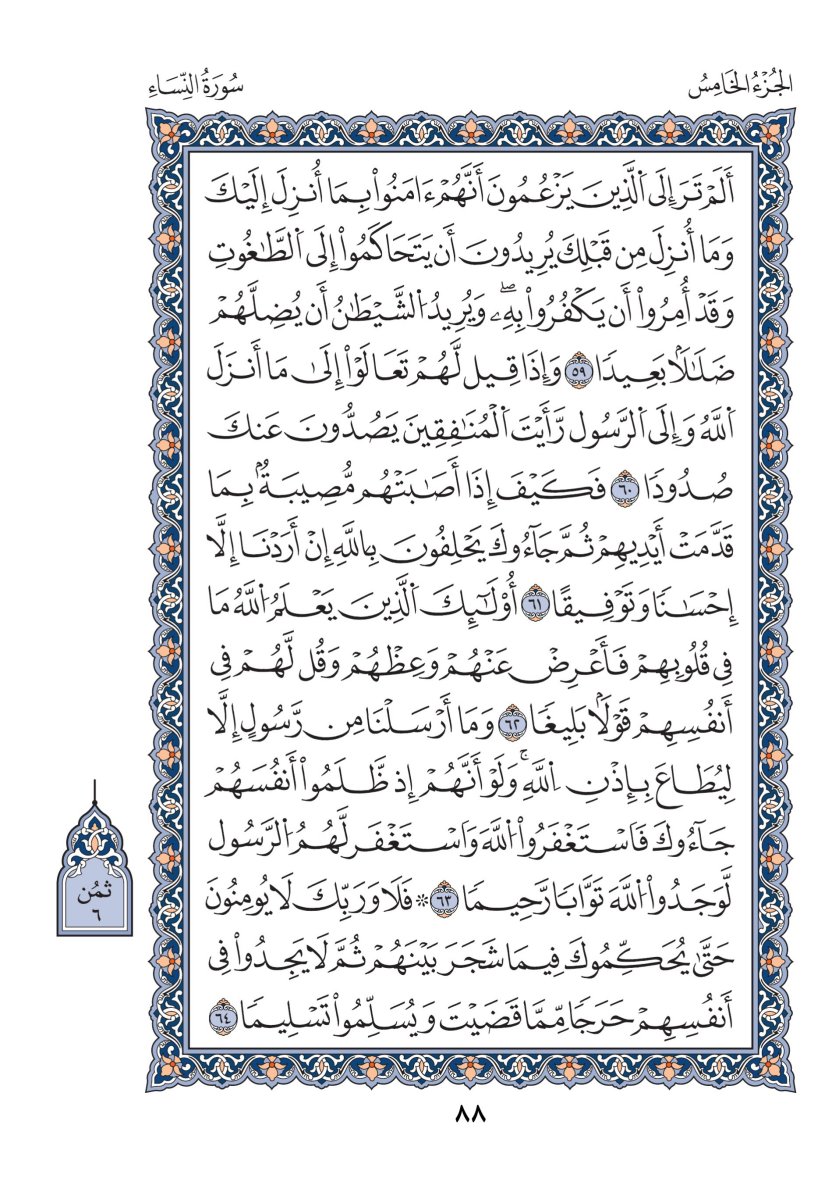 الجُزْءُ الخَامِسُ
سُورَةُ النِّسَاءِ
أَلَمْ تَرَ إِلَى اَ۬لذِينَ يَزْعُمُونَ أَنَّهُمْ ءَامَنُواْ بِمَا أُنزِلَ إِلَيْكَ
وَمَا أُنزِلَ مِن قَبْلِكَ يُرِيدُونَ أَن يَتَحَاكَمُواْ إِلَى اَ۬لطَّٰغُوتِ
وَقَدْ أُمِرُواْ أَن يَكْفُرُواْ بِهِۦۖ وَيُرِيدُ اُ۬لشَّيْطَٰنُ أَن يُضِلَّهُمْ
ضَلَٰلَاۢ بَعِيدٗا ٥٩ وَإِذَا قِيل لَّهُمْ تَعَالَوْاْ إِلَىٰ مَا أَنزَلَ
اَ۬للَّهُ وَإِلَى اَ۬لرَّسُول رَّأَيْتَ اَ۬لْمُنَٰفِقِينَ يَصُدُّونَ عَنكَ
صُدُودٗا ٦٠ فَكَيْفَ إِذَا أَصَٰبَتْهُم مُّصِيبَةُۢ بِمَا
قَدَّمَتْ أَيْدِيهِمْ ثُمَّ جَآءُوكَ يَحْلِفُونَ بِاللَّهِ إِنْ أَرَدْنَا إِلَّا
إِحْسَٰنٗا وَتَوْفِيقًا ٦١ أُوْلَٰٓئِكَ اَ۬لذِينَ يَعْلَمُ اُ۬للَّهُ مَا
فِي قُلُوبِهِمْ فَأَعْرِضْ عَنْهُمْ وَعِظْهُمْ وَقُل لَّهُمْ فِي
أَنفُسِهِمْ قَوْلَاۢ بَلِيغٗا ٦٢ وَمَا أَرْسَلْنَا مِن رَّسُولٍ إِلَّا
لِيُطَاعَ بِإِذْنِ اِ۬للَّهِۚ وَلَوْ أَنَّهُمْ إِذ ظَّلَمُواْ أَنفُسَهُمْ
جَآءُوكَ فَاسْتَغْفَرُواْ اُ۬للَّهَ وَاسْتَغْفَر لَّهُمُ اُ۬لرَّسُول
لَّوَجَدُواْ اُ۬للَّهَ تَوَّابٗا رَّحِيمٗا ٦٣ ۞ فَلَا وَرَبِّكَ لَا يُومِنُونَ
حَتَّىٰ يُحَكِّمُوكَ فِيمَا شَجَرَ بَيْنَهُمْ ثُمَّ لَا يَجِدُواْ فِي
أَنفُسِهِمْ حَرَجٗا مِّمَّا قَضَيْتَ وَيُسَلِّمُواْ تَسْلِيمٗا ٦٤
ثمُن
٦
٨٨